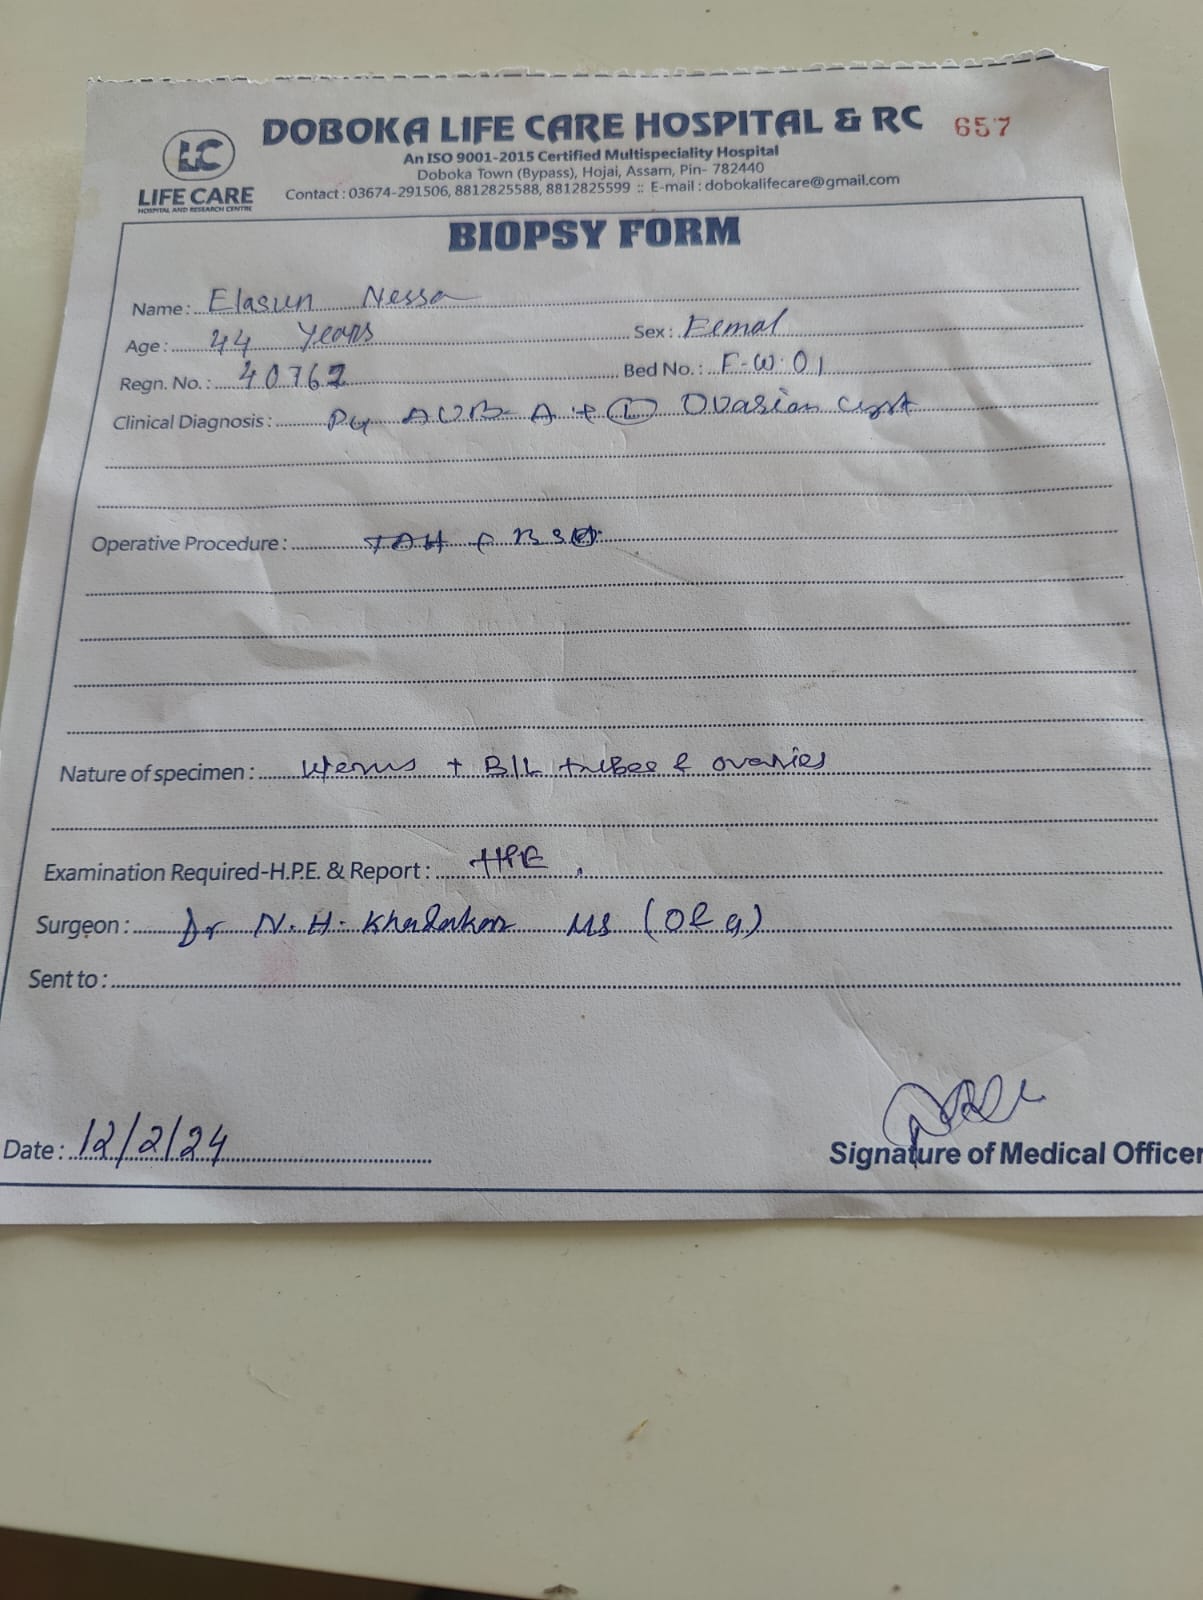 DOBOKA LIFE CARE HOSPITAL & RC 657
An ISO 9001-2015 Certified Multispeciality Hospital
Doboka Town (Bypass), Hojai, Assam, Pin- 782440
Contact : 03674-291506, 8812825588, 8812825599 :: E-mail : dobokalifecare@gmail.com
LC
LIFE CARE
HOSPITAL AND RESEARCH CENTRE
BIOPSY FORM
Name: Elasun Nessa
Age: 44 Years Sex: Femal
Regn. No.: 40762 Bed No.: F-W-01
Clinical Diagnosis: AUB-A + (L) Ovarian cyst
Operative Procedure: TAH + BSO
Nature of specimen: Uterus + B/L tubes & ovaries
Examination Required-H.P.E. & Report: HPE
Surgeon: Dr N. H. MS (O & G)
Sent to:
Date: 12/2/24 Signature of Medical Officer